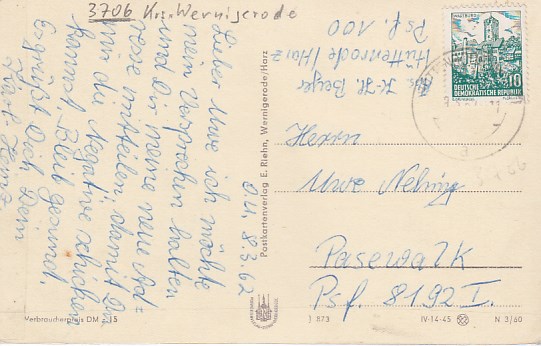 3706 Krs. Wernigerode
d. 8.3.62
Lieber Uwe ich möchte
mein Versprechen halten
und Dir meine neue Ad=
resse mitteilen, damit Du
mir die Negative schicken
kannst. Bleib gesund.
Es grüßt Dich Dein
Karl Heinz
Verbraucherpreis DM -.15
Postkartenverlag E. Riehn, Wernigerode/Harz
Abs. K-H. Beyer
Hüttenrode / Harz
Psf. 100
WARTBURG
10
DEUTSCHE
DEMOKRATISCHE REPUBLIK
Herrn
Uwe Nehring
Pasewalk
Psf. 8192 I.
J 873
IV-14-45
N 3/60